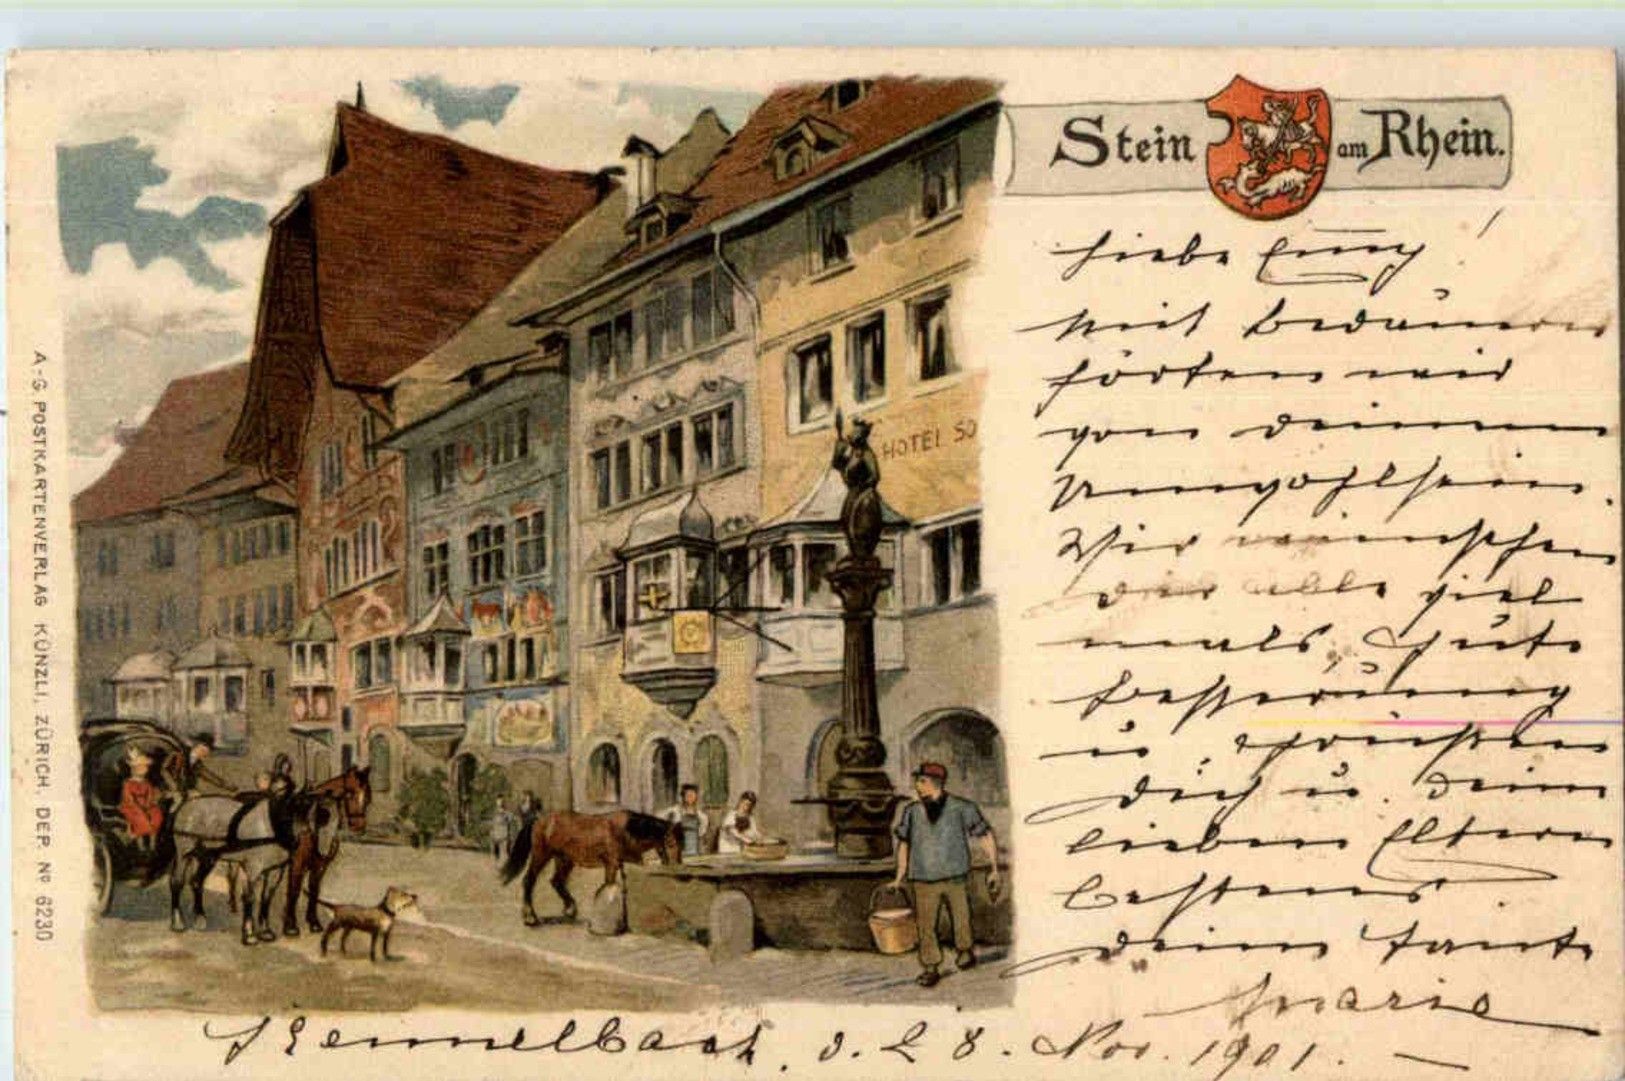 Stein am Rhein.
Liebe Emmy!
Mit bedauern
hörten wir
von deinem
Unwohlsein.
Wir wünschen
dir alle viel
mals Gute
besserung
u. grüssen
dich u. deine
lieben Eltern
bestens
deine Tante
Marie
HOTEL SO
A.-G. POSTKARTENVERLAG KÜNZLI, ZÜRICH, DEP. No 6230
d. 28. Nov. 1901.